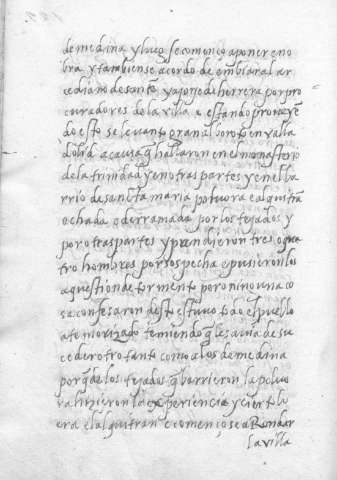 de medina y luego se començo a poner en o
bra y tambien se acordo de embiar al ar
cediano de santo y a jorje de herrera por pro
curadores de la villa e estando proveyē
do esto se levanto gran alboroto en valla
dolid a causa q̄ hallaron en el monasterio
de la trinidad y en otras partes y en el ba
rrio de sancta maria polvora e alquitrā
echada e derramada por los tejados y
por otras partes y prendieron tres o qua
tro hombres por sospecha e pusieron los
a question de tormento pero ninguna co
sa confesaron desto estuvo todo el pueblo
atemorizado temiendo q̄ les avia de su
ceder otro tanto como a los de medina
porq̄ de los tejados q̄ barrieron la polvo
ra hizieron la experiencia y cierto
era el alquitran e començose a Rondar
la villa